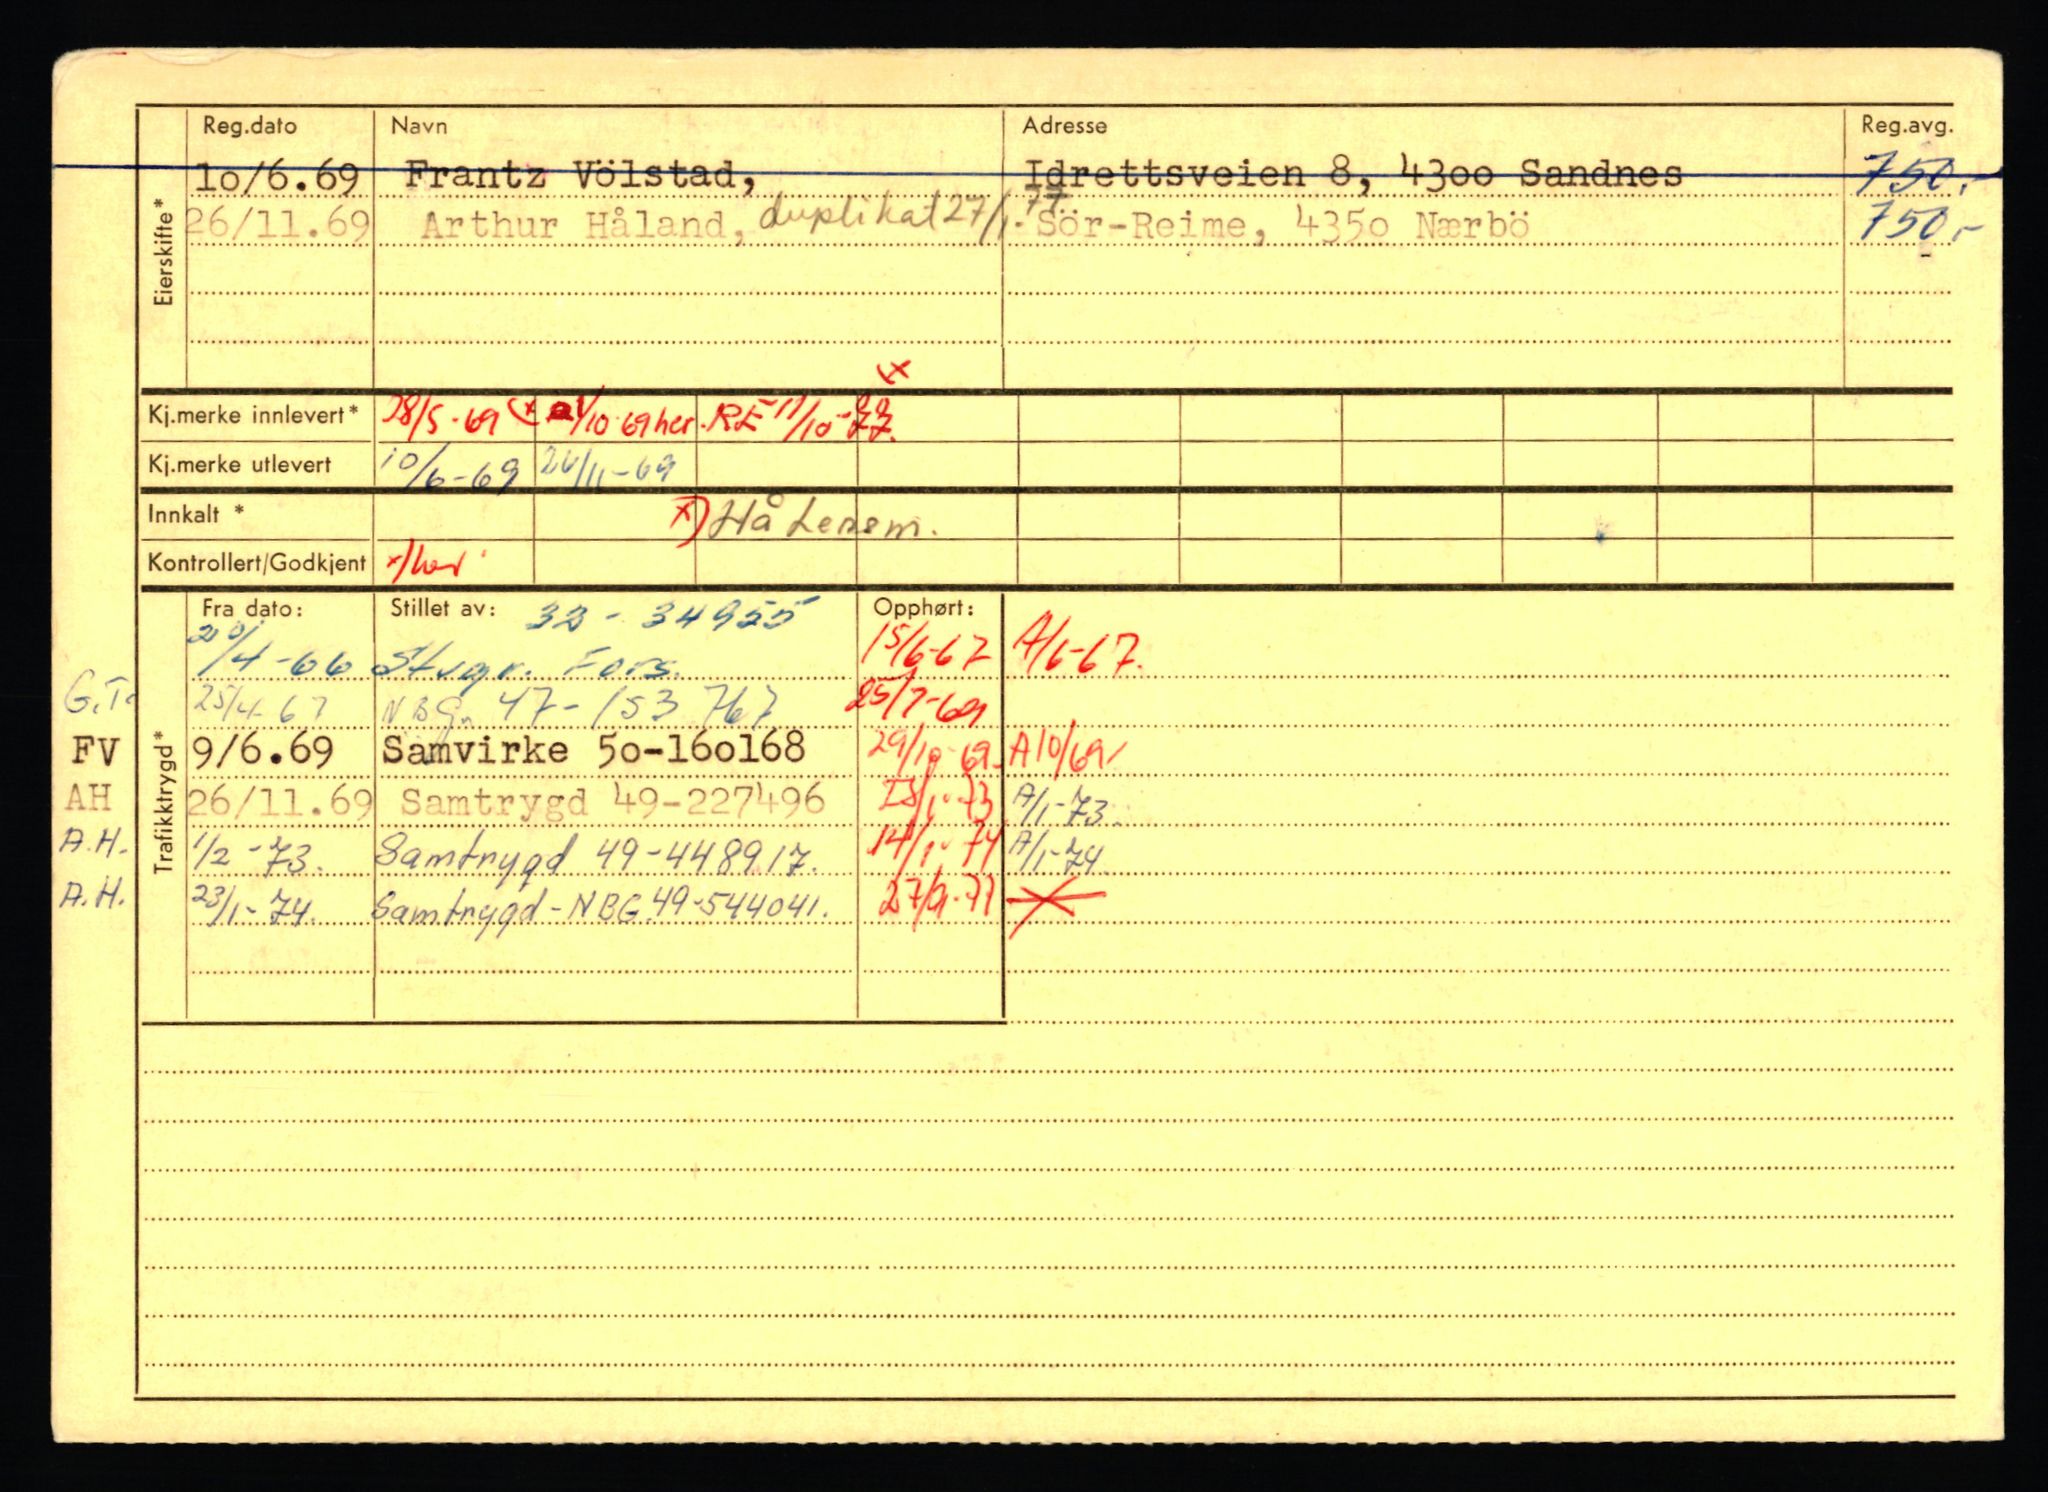 Reg.dato Navn Adresse Reg.avg.
10/6.69 Frantz Völstad, Idrettsveien 8, 4300 Sandnes 750,-
26/11.69 Arthur Håland, duplikat 27/1.77 Sör-Reime, 4350 Nærbö 750,-
Eierskifte*
Kj.merke innlevert* 28/5-69 21/10 69 her. RE 11/10-77.
Kj.merke utlevert 10/6-69 26/11-69
Innkalt * x) Hå Lensm.
Kontrollert/Godkjent x/her
Fra dato: Stillet av: 32-34955 Opphørt:
20/4-66 Stvgr. Fors. 15/6-67 A/6-67.
G.T. 25/4-67 NBG. 47-153 767 25/7-69
FV 9/6.69 Samvirke 50-160168 29/10-69 A10/69
AH 26/11.69 Samtrygd 49-227496 18/1-73 A/1-73.
A.H. 1/2-73. Samtrygd 49-448917. 14/1-74 A/1-74.
A.H. 23/1-74. Samtrygd-NBG.49-544041. 27/9-77
Trafikktrygd*